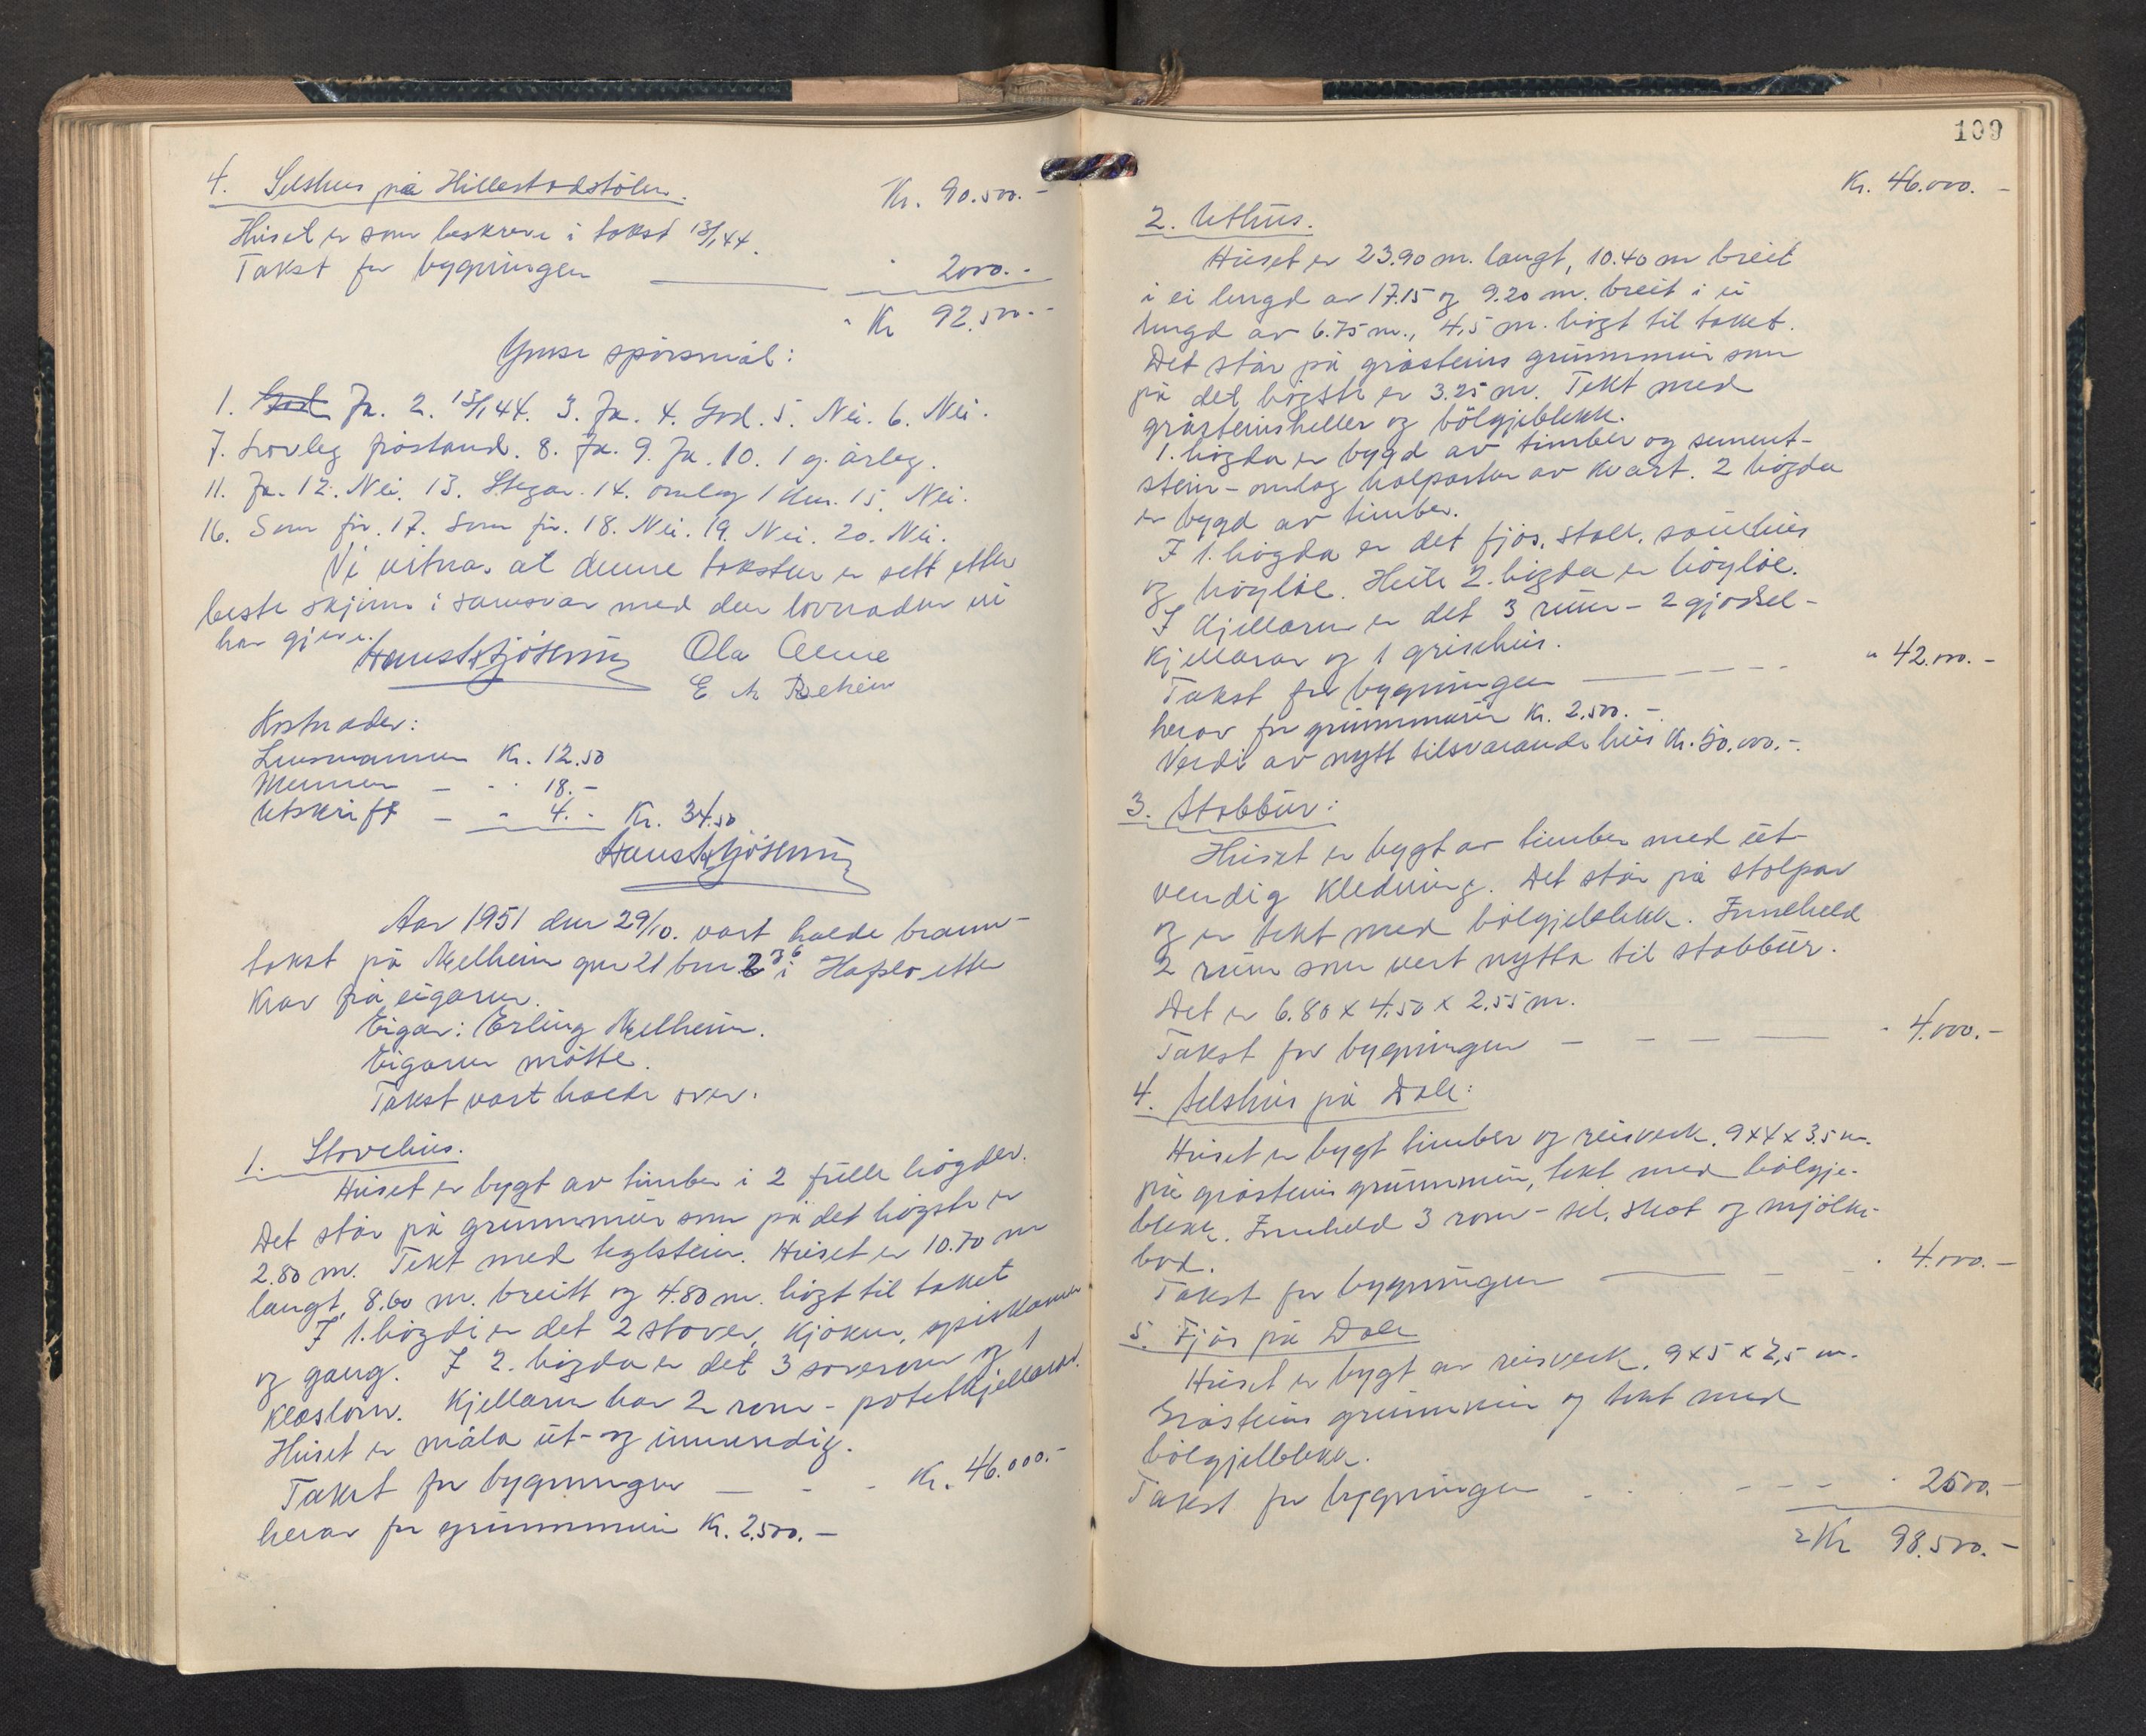 4. Selshus på Hillestadstölen.
Kr. 90.500.-
Huset er som beskreve i takst 13/1 44.
Takst for bygningen — " 2000.-
Kr 92.500.-
Ymse spörsmål:
1. Ja. 2. 13/1 44. 3. Ja. 4. God. 5. Nei. 6. Nei.
7. Lovleg fråstand. 8. Ja. 9. Ja. 10. 1 g. årleg.
11. Ja. 12. Nei. 13. Stegar. 14. omlag 1 km. 15. Nei.
16. Som för. 17. Som för. 18. Nei. 19. Nei. 20. Nei.
Vi vitnar at denne taksten er sett etter
beste skjönn i samsvar med den lovnaden vi
har gjeve.
Ola Alme
Kostnader:
Lensmannen Kr. 12.50
Mennene - " 18.-
Utskrift - " 4.- Kr. 34.50
Aar 1951 den 29/10. vart halde brann-
takst på Melheim gnr 21 bnr 36 i Hafslo etter
krav frå eigaren.
Eigar: Erling Melheim.
Eigaren mötte.
Takst vart halde over:
1. Stovehus.
Huset er bygt av timber i 2 fulle högder.
Det står på grunnmur som på det högste er
2.80 m. Tekt med teglstein. Huset er 10.70 m
langt, 8.60 m. breitt og 4.80 m. högt til taket
I 1. högdi er det 2 stover, kjöken, spiskammer
og gang. I 2. högda er det 3 soverom og 1
klesloin. Kjellaren har 2 rom - potetkjellarar.
Huset er måla ut- og innvendig.
Takst for bygningen — - - Kr. 46.000.-
herav for grunnmuren Kr. 2.500.-
109
Kr. 46.000.-
2. Uthus.
Huset er 23.90 m. langt, 10.40 m breit
i ei lengd av 17.15 og 9.20 m. breit i ei
lengd av 6.75 m., 4,5 m. högt til taket.
Det står på gråsteins grunnmur som
på det högste er 3.25 m. Tekt med
gråsteinsheller og bölgjeblekk.
1. högda er bygd av timber og sement-
stein - omlag halparten av kvart. 2 högda
er bygd av timber.
I 1. högda er det fjös, stall, sauehus
og höyloe. Heile 2. högda er höyloe.
I kjellaren er det 3 rum - 2 gjödsel-
kjellarar og 1 grisehus.
Takst for bygningen — - - - " 42.000.-
herav for grunnmuren Kr. 2.500.-
Verdi av nytt tilsvarande hus Kr. 50.000.-.
3. Stabbur:
Huset er bygt av timber med ut-
vendig kledning. Det står på stolpar
og er tekt med bölgjeblekk. Inneheld
2 rum som vert nytta til stabbur.
Det er 6.80 x 4.50 x 2.55 m.
Takst for bygningen - - - — " 4.000.-
4. Selshus på Dale:
Huset er bygt timber og reisverk. 9x4x3.5 m.
på gråsteins grunnmur, tekt med bölgje-
blekk. Inneheld 3 rom - sel, skot og mjölke-
bod.
Takst for bygningen — - - " 4.000.-
5. Fjös på Dale
Huset er bygt av reisverk. 9x5x2,5 m.
Gråsteins grunnmur og tekt med
bölgjeblekk.
Takst for bygningen - - - - - " 2500.-
Kr 98.500.-